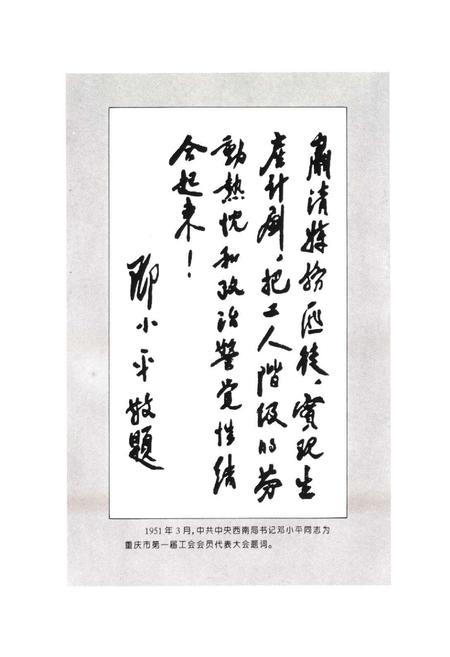 肅清特務匪徒，實現生
產计劃，把工人階级的劳
動熱忱和政治警觉性结
合起来！
邓小平敬題
1951年3月，中共中央西南局书记邓小平同志为
重庆市第一届工会会员代表大会题词。